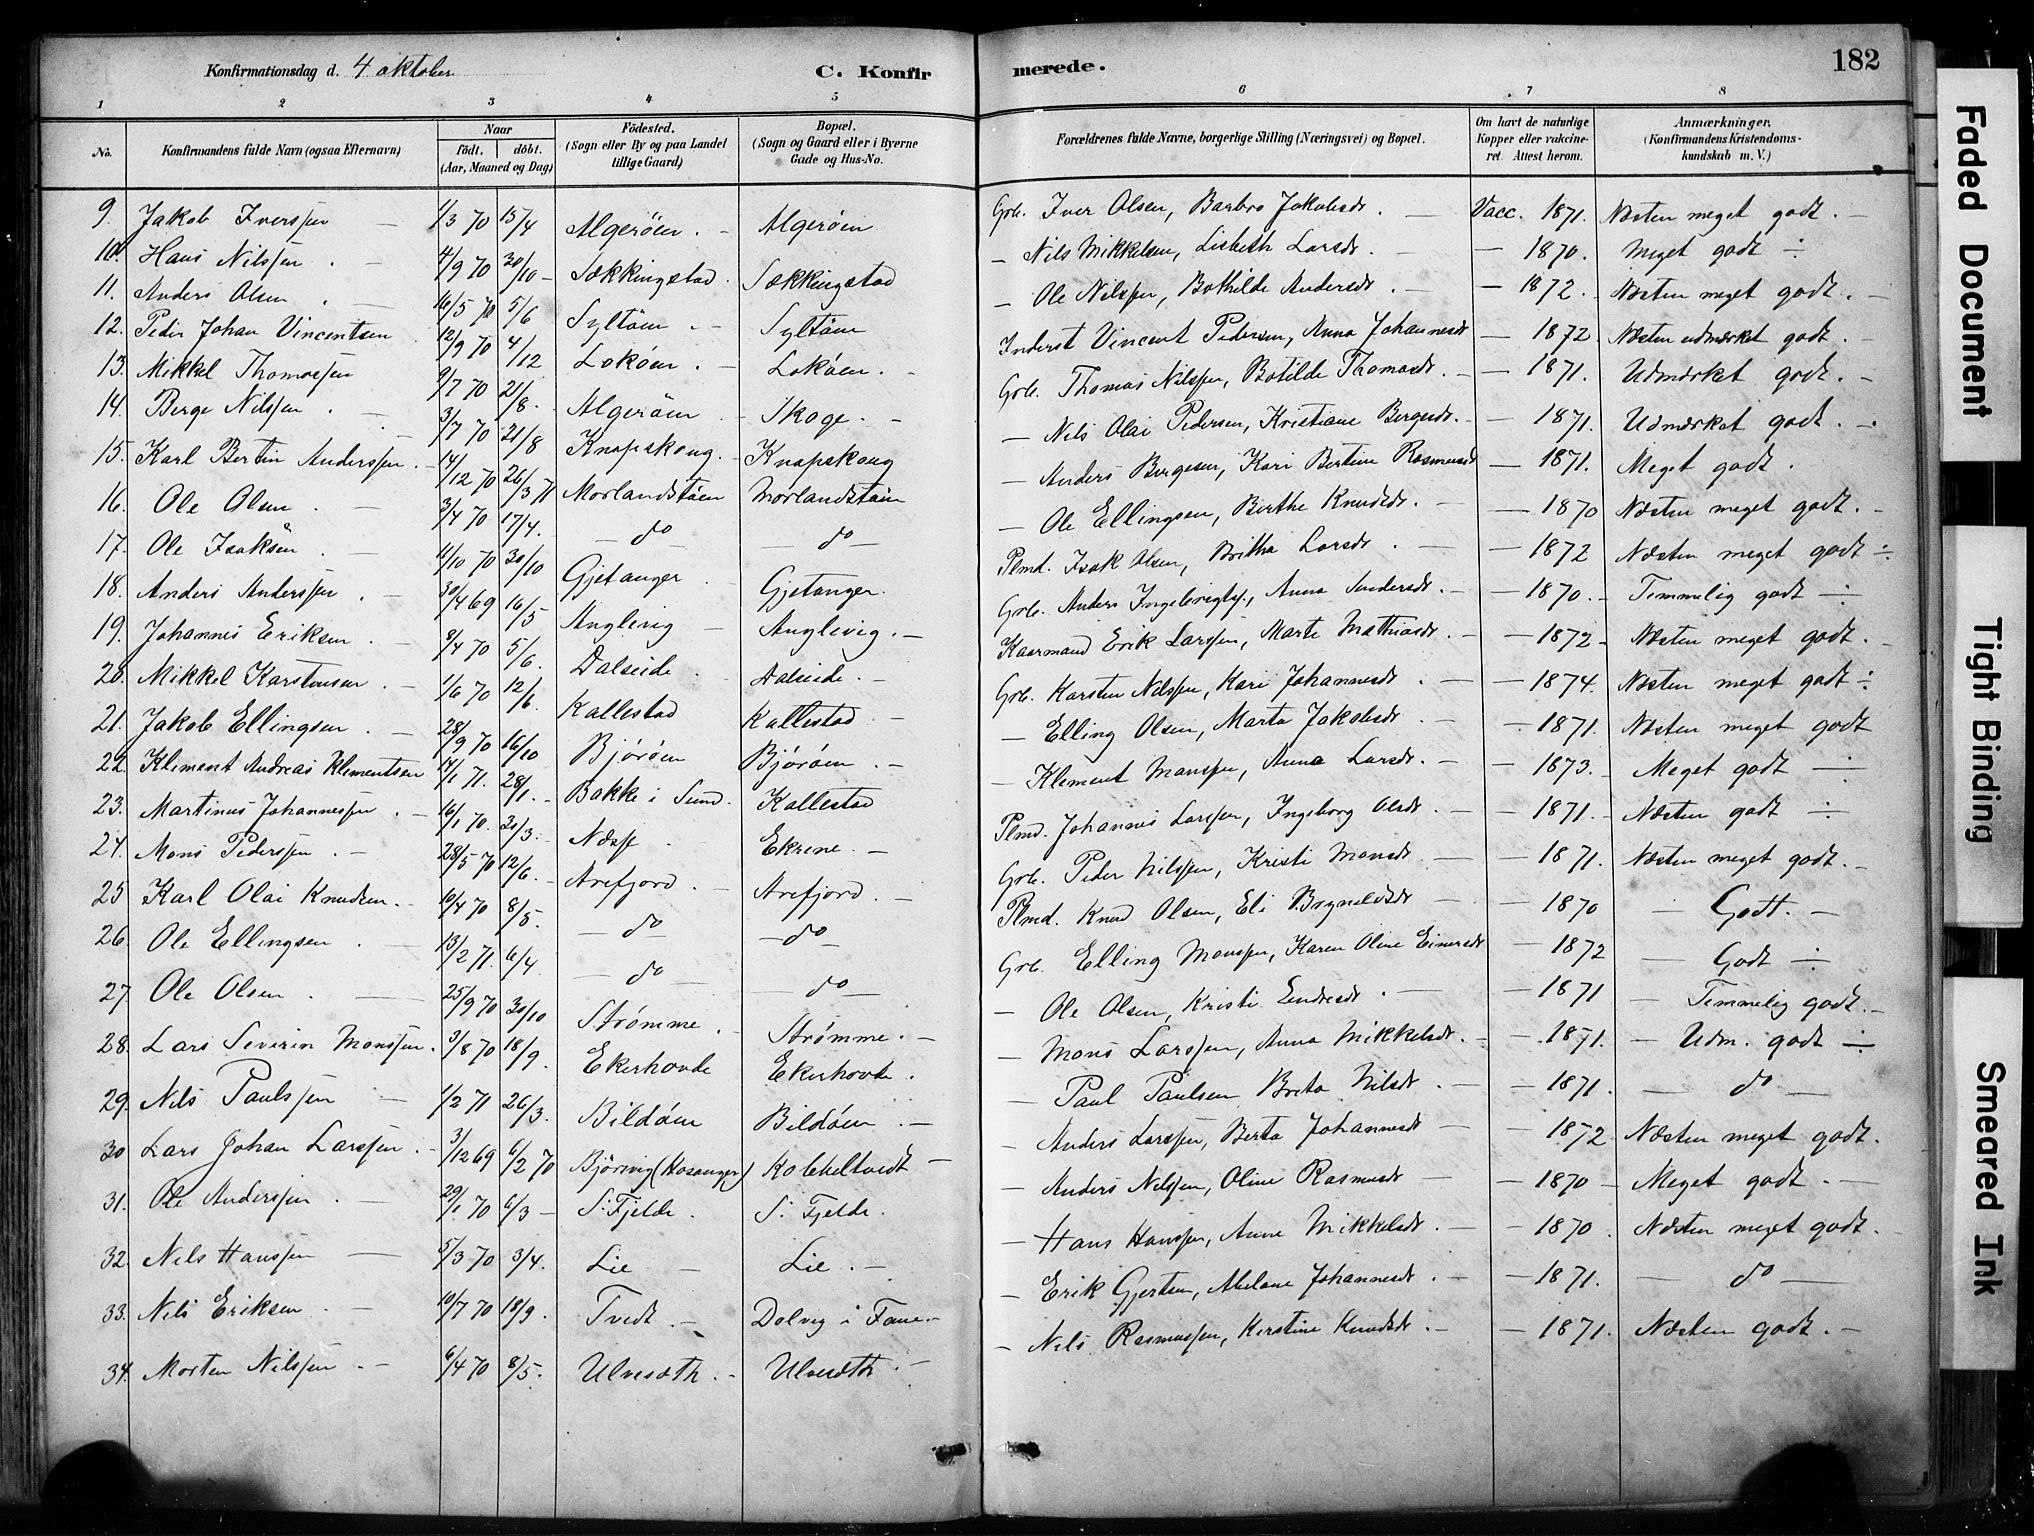 Konfirmationsdag d. 4 oktober C. Konfirmerede. 182
1 2 3 4 5 6 7 8
No. Konfirmandens fulde Navn (ogsaa Efternavn) Naar födt. döbt. (Aar, Maaned og Dag) Födested. (Sogn eller By og paa Landet tillige Gaard) Bopæl. (Sogn og Gaard eller i Byerne Gade og Hus-No. Forældrenes fulde Navne, borgerlige Stilling (Næringsvei) og Bopæl. Om havt de naturlige Kopper eller vakcineret Attest herom. Anmærkninger. (Konfirmandens Kristendomskundskab m. V.)
9. Jakob Iverssen 1/3 70 15/4 Algerøen. Algerøen Grb. Iver Olsen, Barbro Jakobsdr. Vacc. 1871. Næsten meget godt.
10. Hans Nilssen 4/9 70 30/10 Sækkingstad Sækkingstad Nils Mikkelsen, Lisbeth Larsdr. 1870. Meget godt
11. Anders Olsen 16/5 70 5/6 Syltøen Syltøen Ole Nilssen, Bothilde Andersdr. 1872. Næsten meget godt.
12. Peder Johan Vincentsen 12/9 70 4/12 Lokøen Lokøen. Inderst Vincent Pedersen, Anna Johannesdr 1872. Næsten udmærket godt.
13. Mikkel Thomassen 9/7 70 21/8. Algerøen Skoge. Grb. Thomas Nilssen, Botilde Thomasdr. 1871. Udmærket godt.
14. Berge Nilssen 3/7 70 21/8 Knapskong. Knapskong Nils Olai Pedersen, Kristiane Bergesdr. 1871. Udmærket godt.
15. Karl Bertin Anderssen 14/12 70 26/3 71 Morlandstøen Morlandstøen Anders Bergesen, Kari Bertine Rasmusdr 1871. Meget godt.
16. Ole Olsen 3/4 70 17/4. do do Ole Ellingsen, Berthe Knudsdr. 1870 Næsten meget godt.
17. Ole Isaksen 11/10 70 30/10 Gjetanger Gjetanger. Plmd. Isak Olsen, Britha Larsdr 1872 Næsten meget godt
18. Anders Anderssen 30/4 69 16/5 Anglevig Anglevig. Grb. Anders Ingebrigts., Anna Sandersdr. 1870. Temmelig godt
19. Johannes Eriksen 9/4 70 5/6. Dalseide Dalseide. Kaarmand Erik Larssen, Marte Mathiasdr. 1872 Næsten meget godt.
20. Mikkel Karstensen 1/6 70 12/6. Kallestad Kallestad. Grb. Karsten Nilssen, Kari Johannesdr 1874. Næsten meget godt
21. Jakob Ellingsen 28/9 70 16/10 Bjørøen Bjørøen. Elling Olsen, Marta Jakobsdr. 1871. Næsten meget godt
22. Klement Andreas Klementsen 14/1 71. 28/1. Bakke i Sund. Kallestad Klement Monssen, Anna Larsdr. 1873. Meget godt
23. Martinus Johannessen 16/1 70. 30/3. Næsse Ekrene. Plmd. Johannes Larssen, Ingeborg Olsdr 1871. Næsten godt
24. Mons Pederssen 28/5 70 12/6. Arefjord. Arefjord Grb. Peder Nilssen, Kristi Monsdr 1871. Næsten meget godt.
25 Karl Olai Knudsen. 10/4 70 8/5. do do Plmd. Knud Olsen, Eli Brynildsdr 1870 Godt.
26. Ole Ellingsen 13/2 71. 6/4. do do Grb. Elling Monssen, Karen Oline Einersdr 1872 Godt
27. Ole Olsen 25/9 70 30/10 Strømme Strømme. Ole Olsen, Kristi Endresdr. 1871 Temmelig godt.
28. Lars Severin Monssen. 3/8 70 18/9. Ekerhovde Ekerhovde. Mons Larssen, Anna Mikkelsdr. 1871. Udm. godt
29. Nils Paulssen 1/2 71 26/3. Bildøen Bildøen. Paul Paulsen Brita Nilsdr. 1871. do
30 Lars Johan Larssen. 3/12 69 6/2 70 Bjørvig (Hosanger) Kolbeltvedt Anders Larssen, Berta Johannesdr 1872 Næsten meget godt.
31. Ole Anderssen 29/1. 70 6/3 S. Fjelde. S. Fjelde. Anders Nilssen, Oline Rasmusdr 1870 Meget godt.
32. Nils Hanssen 5/3 70 3/4. Lie Lie. Hans Hanssen, Anne Mikkelsdr. 1870 Næsten meget godt.
33. Nils Eriksen 10/7 70 18/9. Tvedt. Dolvig i Fane. Erik Gjertsen, Abelone Johannesdr. 1871. do
34. Morten Nilssen 6/4 70 8/5. Ulvesæth. Ulvesæth. Nils Rasmussen, Kerstine Knudsdr. 1871. Næsten godt.
Faded Document
Tight Binding
Smeared Ink